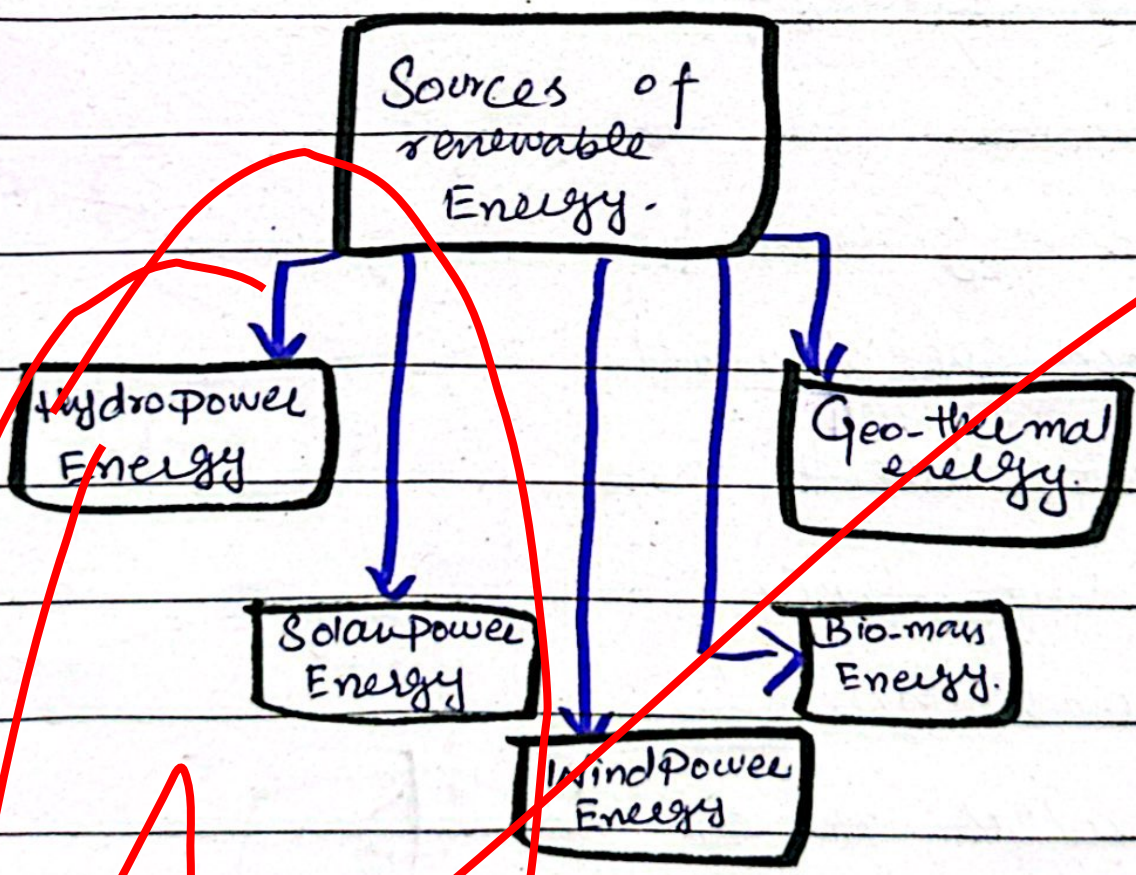 Sources of
renewable
Energy.
Hydropower
Energy
Geo-thermal
energy.
Solarpower
Energy
Bio-mass
Energy.
Wind Power
Energy